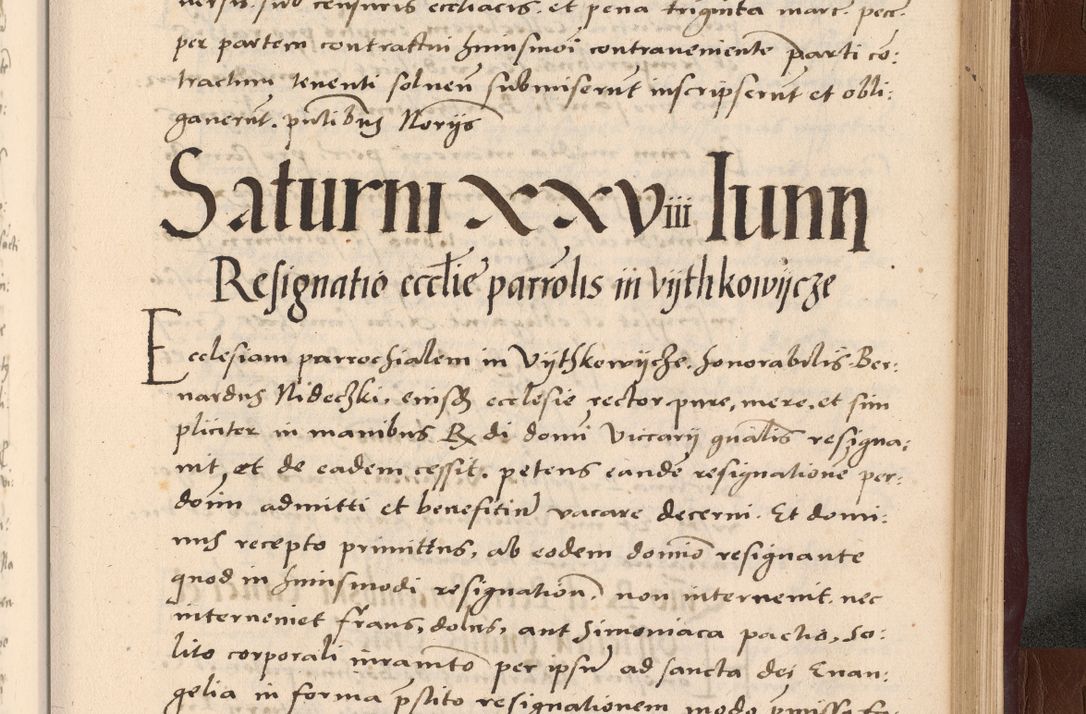 versis sub censuris eccliacis et pena triginta marc. pecc.
per partem contractui huiusmoi contraueniente parti co:
tractum tenenti soluen submiserut inscripserut et obli:
gauerut. putibus Norijs
Saturni XXViii Iunii
Resignatio ecclie parrolis in vythkowijcze
Ecclesiam parrochialem in Vythkowijche. honorabilis Ber:
nardus Nideczki, eiusdem ecclesie rector pure, mere, et sim
pliciter in manibus R di domi Viccarij gnalis resigna:
uit, et de eadem cessit. petens eande resignatione per
dnm admitti et benefitiu vacare decerni. Et domi:
nus recepto primittus, ab eodem domio resignante
quod in huiusmodi resignation, non interuenit. nec
interueniet fraus, dolus, aut Simoniaca pactio, So:
lito corporali iuramto per ipsu ad sancta dei Euan:
gelia in forma pstito resignationem modo pmisso fa: